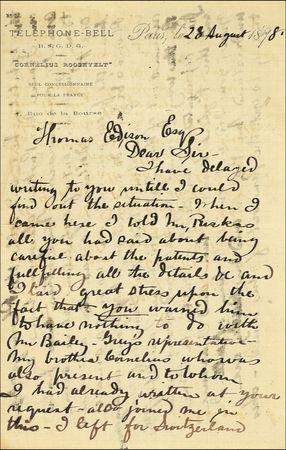 TELEPHONE-BELL
B. S. G. D. G.
CORNELIUS ROOSEVELT
SEUL CONCESSIONNAIRE
POUR LA FRANCE
1, Rue de la Bourse
Paris, le 28 August 1878
Thomas Edison Esq
Dear Sir -
I have delayed
writing to you untill I could
find out the situation - When I
came here I told Mr Puskas
all you had said about being
careful about the patents and
fullfilling all the details &c and
I laid great stress upon the
fact that - you warned him
to have nothing to do with
Mr Baily - Grays representative -
My brother Cornelius who was
also present and to whom
I had already written at your
request - also joined me in
this - I left for Switzerland